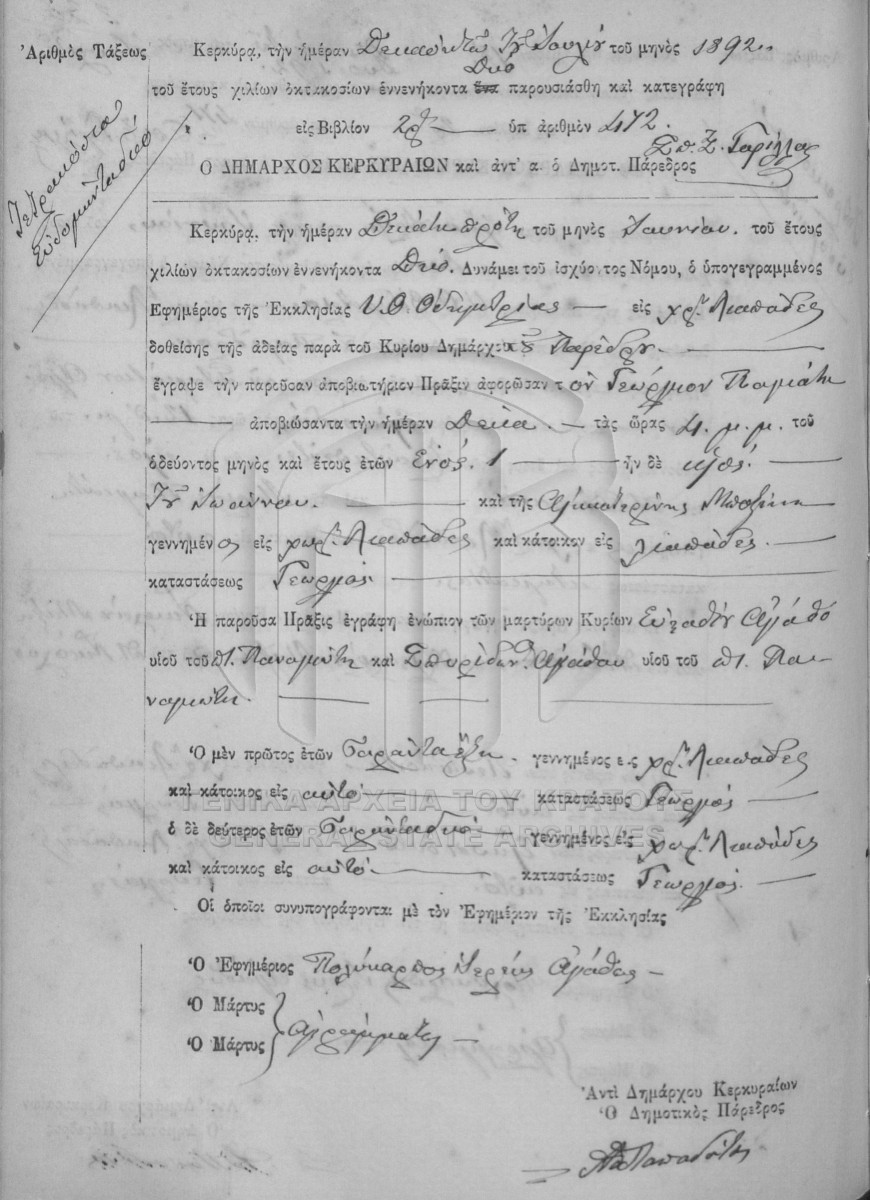 Ἀριθμὸς Τάξεως
Τετρακόσια
Ἑβδομῆνταδύο
Κερκύρα, τὴν ἡμέραν Δεκαπέντε Ἰουλίου τοῦ μηνὸς 1892.
Δύο
τοῦ ἔτους χιλίων ὀκτακοσίων ἐννενήκοντα ἕνα παρουσιάσθη καὶ κατεγράφη
εἰς Βιβλίον ὑπ ἀριθμὸν 472.
Σπ. Ξ.
Ὁ ΔΗΜΑΡΧΟΣ ΚΕΡΚΥΡΑΙΩΝ καὶ ἀντ' α. ὁ Δημοτ. Πάρεδρος
Κερκύρα, τὴν ἡμέραν Δεκάτη πρότη τοῦ μηνὸς Ἰουνίου. τοῦ ἔτους
χιλίων ὀκτακοσίων ἐννενήκοντα Δύο. Δυνάμει τοῦ ἰσχύοντος Νόμου, ὁ ὑπογεγραμμένος
Ἐφημέριος τῆς Ἐκκλησίας Υ. Θ. Ὁδηγητρίας εἰς χωρ. Λιαπάδες
δοθείσης τῆς ἀδείας παρὰ τοῦ Κυρίου Δημάρχου Παρέδρου.
ἔγραψε τὴν παροῦσαν ἀποβιωτήριον Πρᾶξιν ἀφορῶσαν τὸν Γεώργιον
ἀποβιώσαντα τὴν ἡμέραν Δέκα. τὰς ὥρας 4. μ. μ. τοῦ
ὁδεύοντος μηνὸς καὶ ἔτους ἐτῶν Ἑνός. 1 ἦν δὲ υἱὸς.
Τοῦ Ἰωάννου. καὶ τῆς Αἰκατερίνης
γεννημένος εἰς χωρ. Λιαπάδες καὶ κάτοικον εἰς Λιαπάδες.
καταστάσεως Γεωργός.
Ἡ παροῦσα Πρᾶξις ἐγράφη ἐνώπιον τῶν μαρτύρων Κυρίων Εὐσταθίου Ἀγάθο
υἱοῦ τοῦ π. Παναγιώτη καὶ Σπυρίδων. Ἀγάθου υἱοῦ τοῦ π. Πα-
ναγιώτη.
Ὁ μὲν πρῶτος ἐτῶν Σαράντα ἕξη. γεννημένος εἰς χωρ. Λιαπάδες
καὶ κάτοικος εἰς αὐτό καταστάσεως Γεωργός
ὁ δὲ δεύτερος ἐτῶν Σαράνταδυό γεννημένος εἰς χωρ. Λιαπάδες
καὶ κάτοικος εἰς αὐτό. καταστάσεως Γεωργός.
ΓΕΝΙΚΑ ΑΡΧΕΙΑ ΤΟΥ ΚΡΑΤΟΥΣ
GENERAL STATE ARCHIVES
Οἱ ὁποῖοι συνυπογράφονται μὲ τὸν Ἐφημέριον τῆς Ἐκκλησίας
Ὁ Ἐφημέριος Πολύκαρπος Ἱερεὺς Ἀγάθος
Ὁ Μάρτυς
Ὁ Μάρτυς Ἀγράμματοι
Ἀντὶ Δημάρχου Κερκυραίων
Ὁ Δημοτικὸς Πάρεδρος